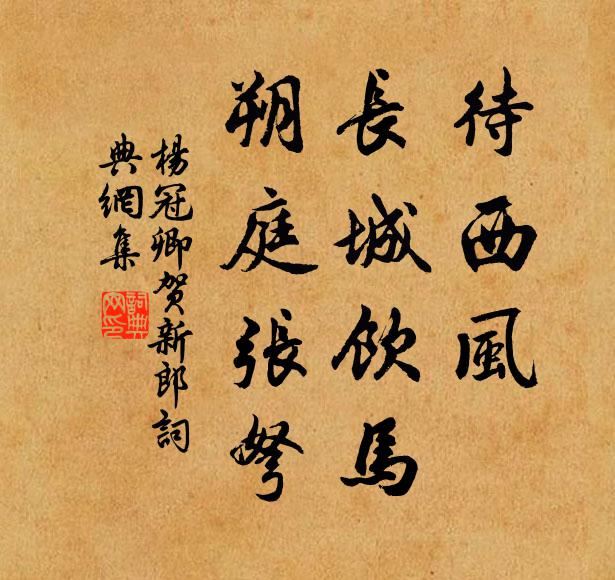 待西風
長城飲馬
朔庭張弩
楊冠卿賀新郎詞
典網集
詞典
网印